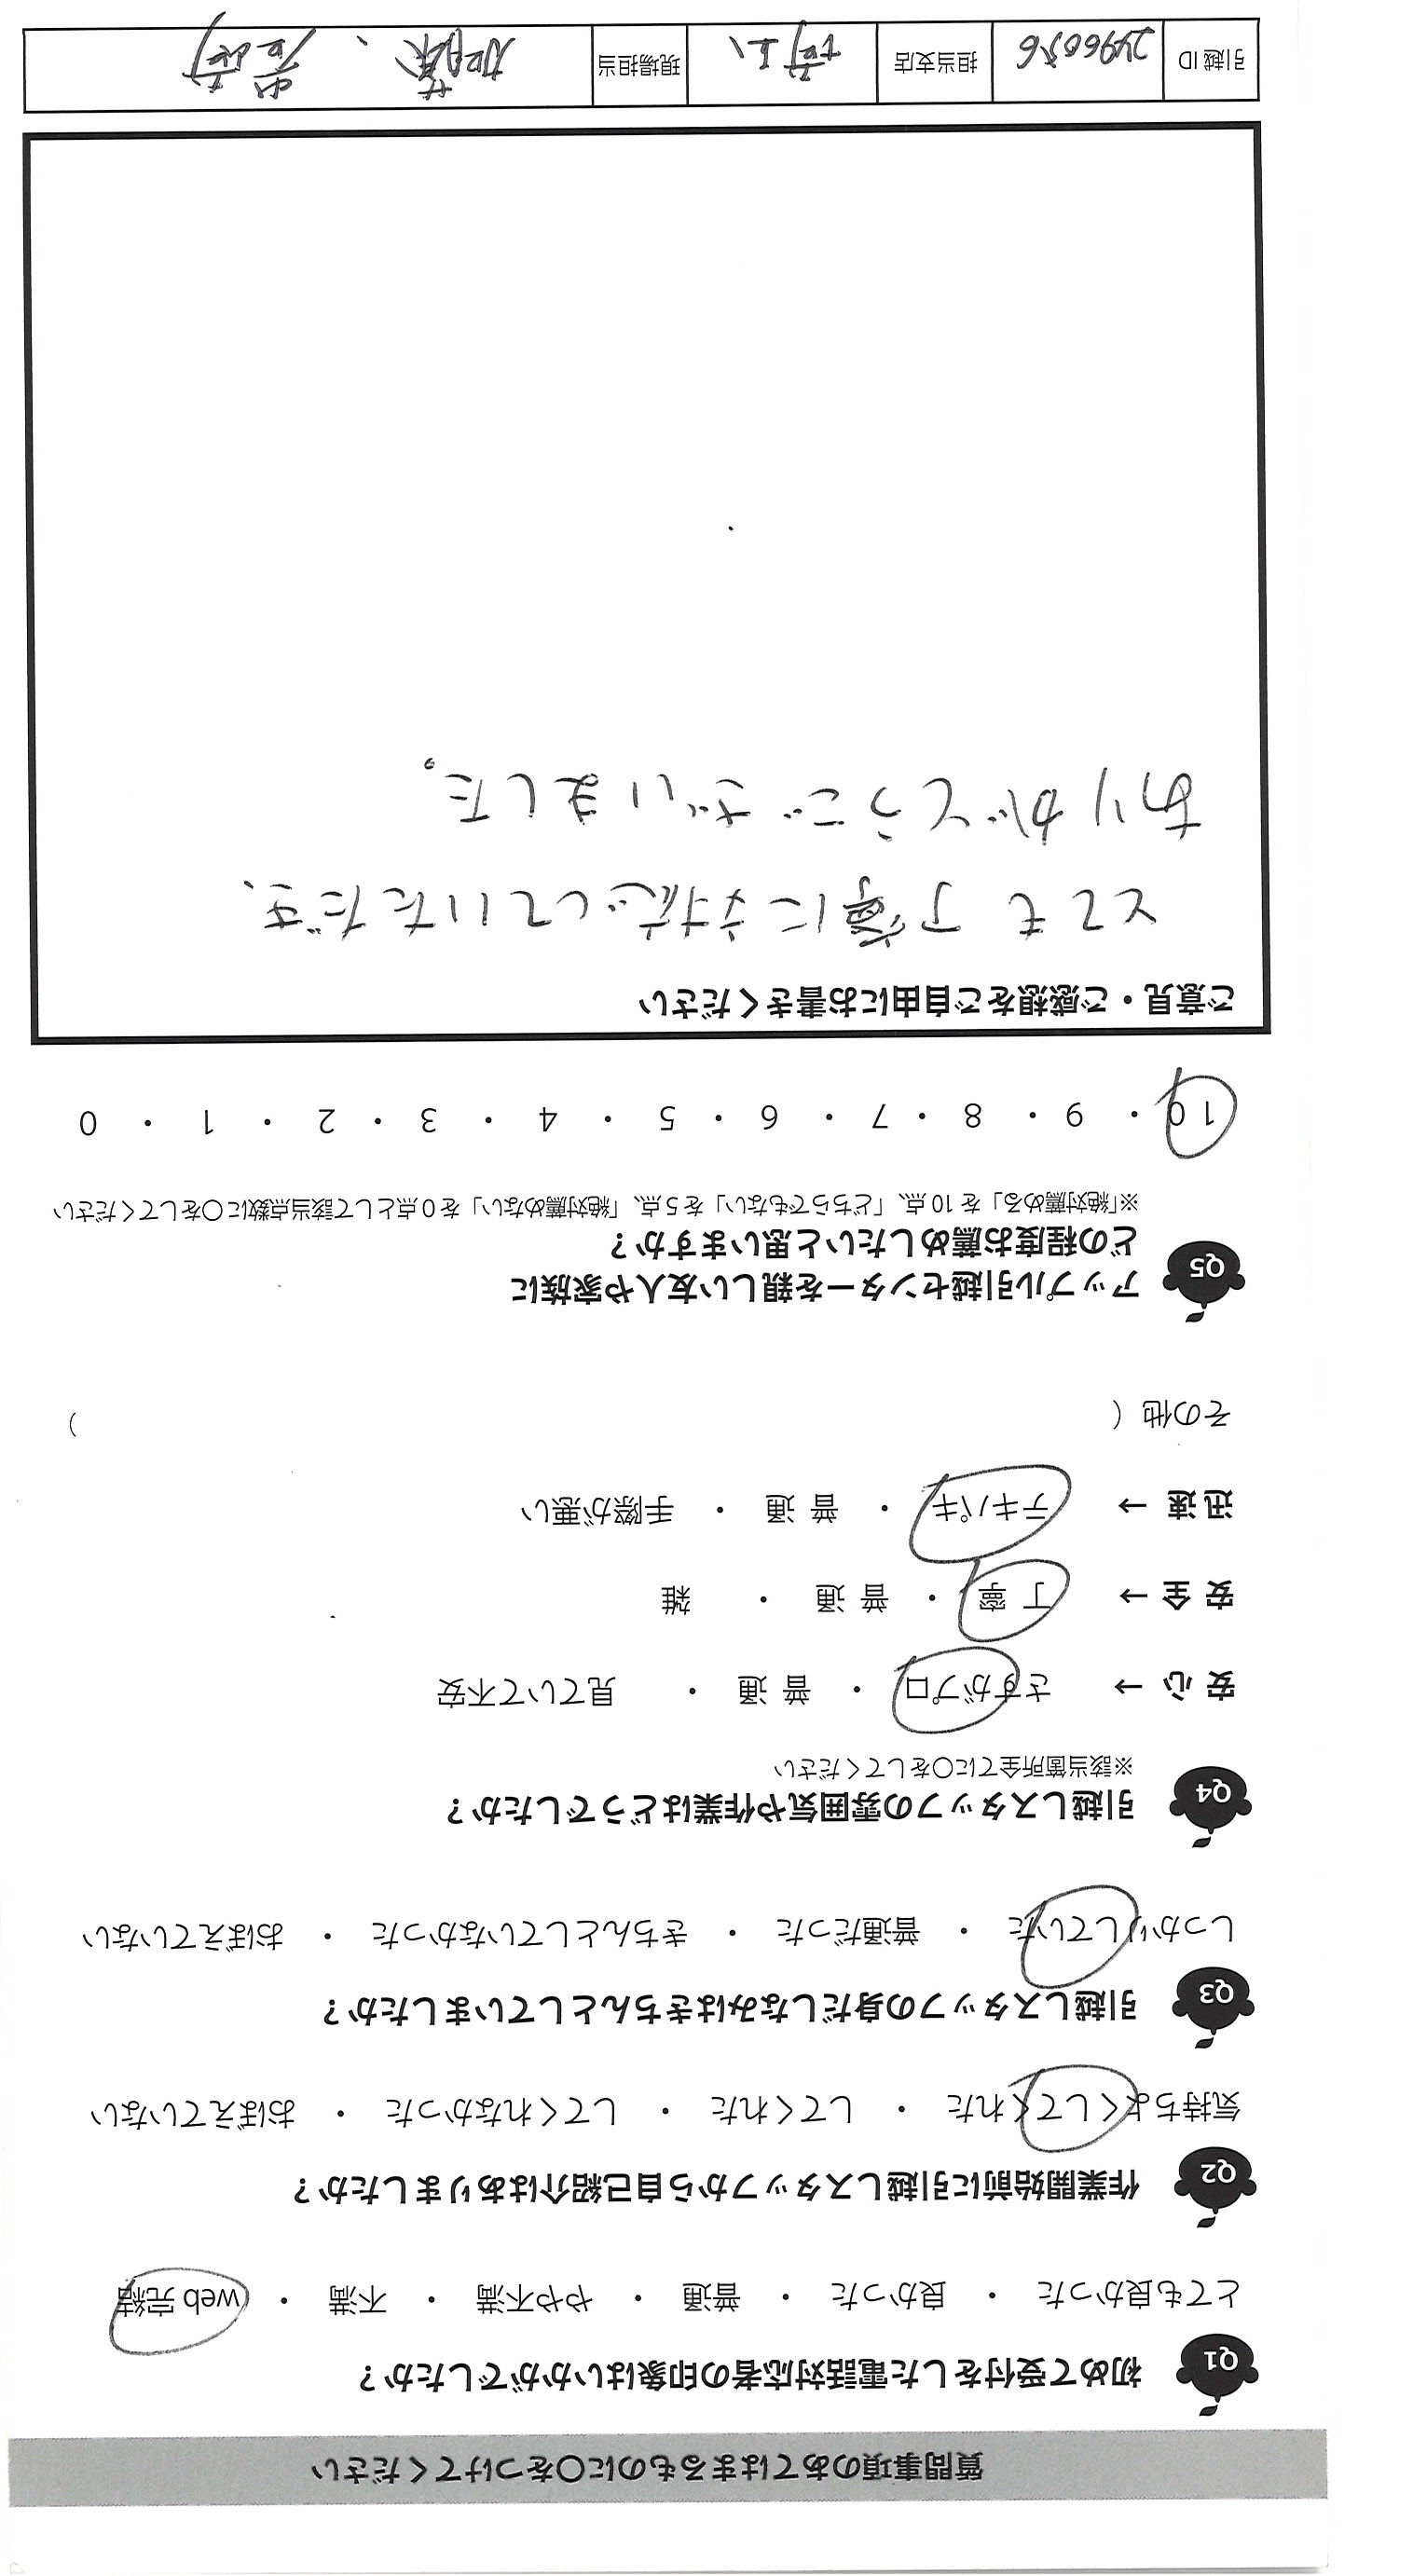 質問事項のあてはまるものに○をつけてください
Q1 初めて受付をした電話対応者の印象はいかがでしたか？
とても良かった ・ 良かった ・ 普通 ・ やや不満 ・ 不満 ・ web 完結
Q2 作業開始前に引越しスタッフから自己紹介はありましたか？
気持ちよくしてくれた ・ してくれた ・ してくれなかった ・ おぼえていない
Q3 引越しスタッフの身だしなみはきちんとしていましたか？
しっかりしていた ・ 普通だった ・ きちんとしていなかった ・ おぼえていない
Q4 引越しスタッフの雰囲気や作業はどうでしたか？
※該当箇所全てに○をしてください
安 心 → さすがプロ ・ 普 通 ・ 見ていて不安
安 全 → 丁 寧 ・ 普 通 ・ 雑
迅 速 → テキパキ ・ 普 通 ・ 手際が悪い
その他（ ）
Q5 アップル引越センターを親しい友人や家族に
どの程度お薦めしたいと思いますか？
※「絶対薦める」を 10 点、「どちらでもない」を 5 点、「絶対薦めない」を 0 点として該当点数に○をしてください
10 ・ 9 ・ 8 ・ 7 ・ 6 ・ 5 ・ 4 ・ 3 ・ 2 ・ 1 ・ 0
ご意見・ご感想をご自由にお書きください
とても丁寧に対応していただき、
ありがとうございました。
引越 ID 2496056 担当支店 現場担当 加藤、岩崎